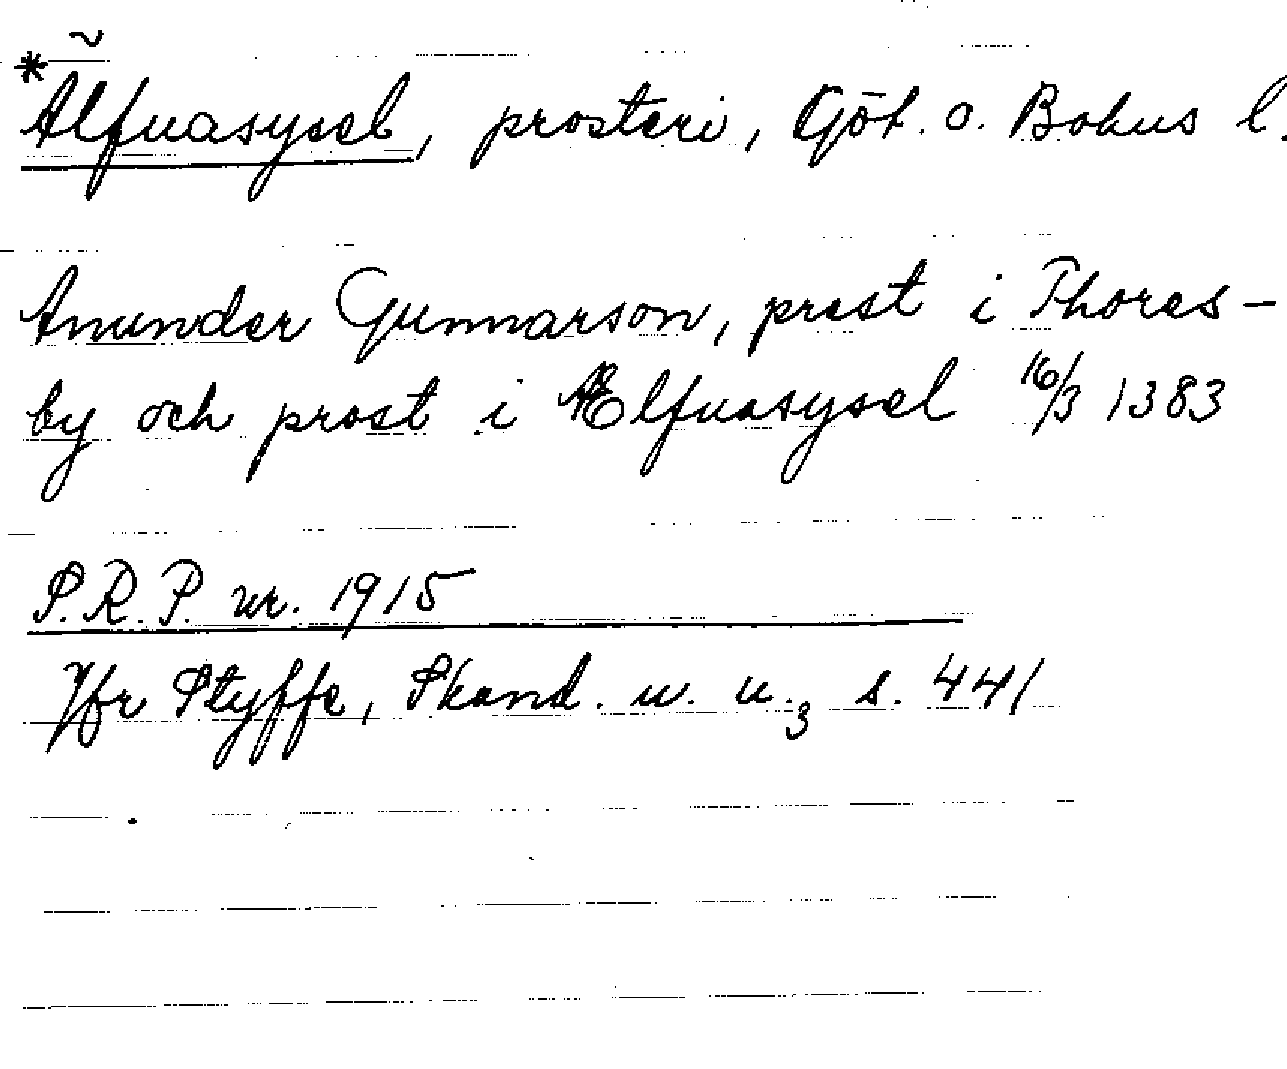 ~
*Älfuasysel, prosteri, Göt. o. Bohus l.
Anunder Gunnarson, prest i Thores-
by och prost i Ælfuasysel 16/3 1383
S.R.P. nr. 1915
Jfr Styffe, Skand. u. u.3 s. 441